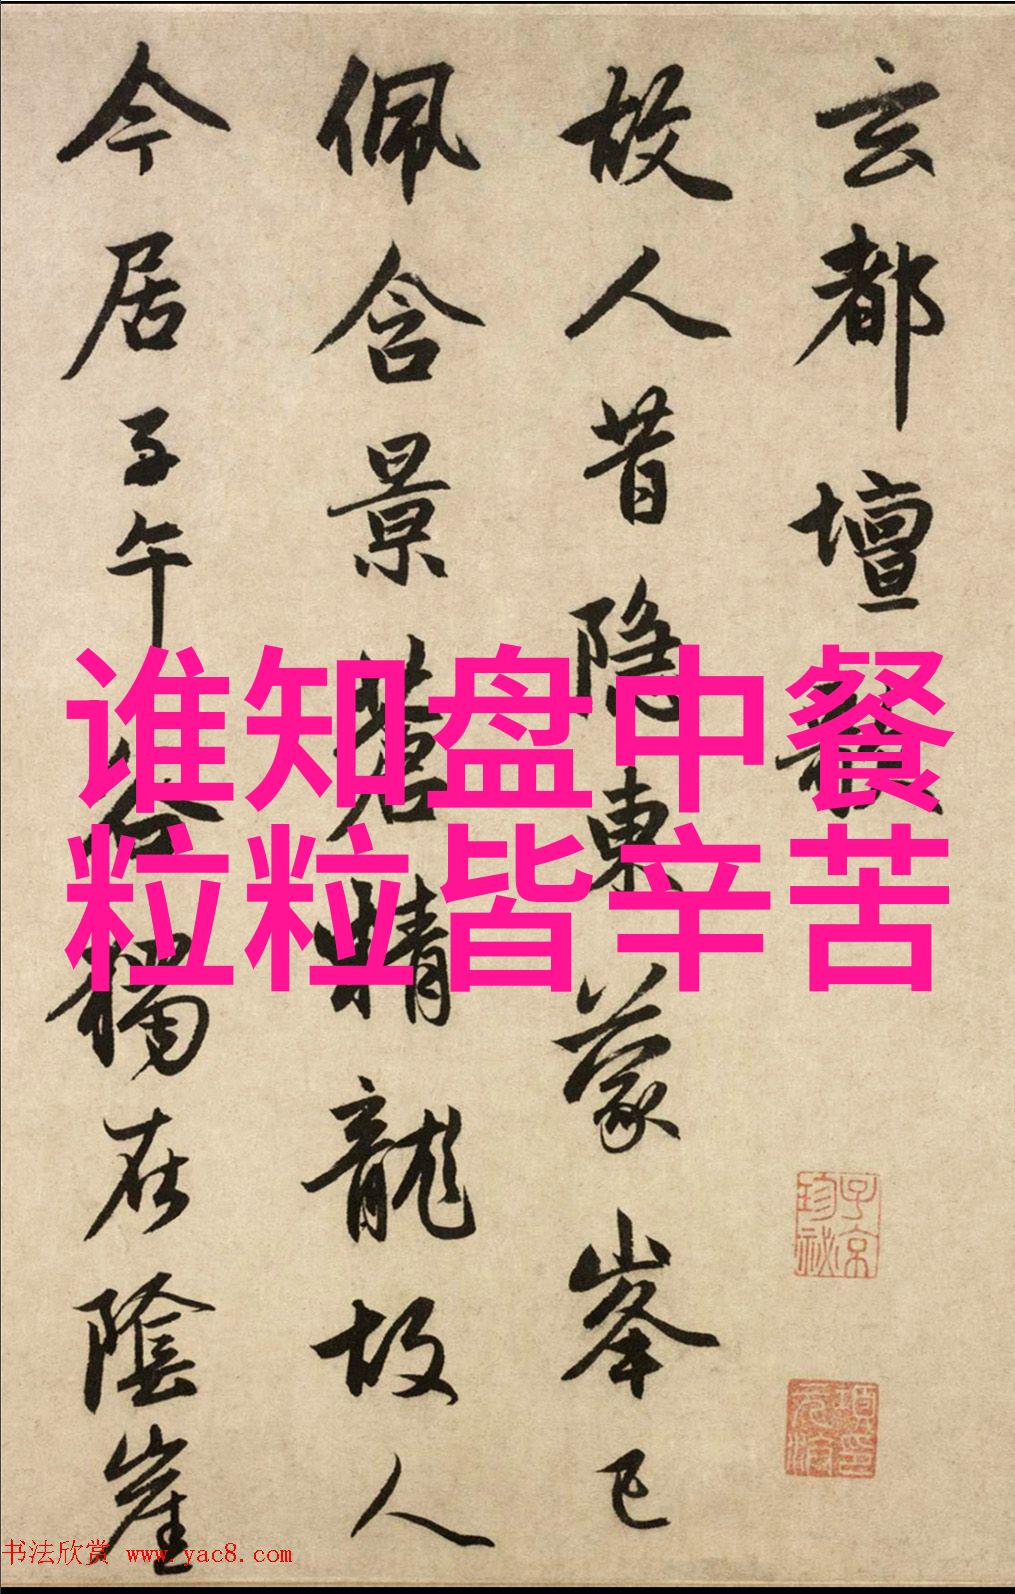 玄都壇歌
故人昔隱東蒙峯已
佩含景蒼精龍故人
今居子午谷獨在陰崖
谁知盘中餐
粒粒皆辛苦
子京
珍祕
书法欣赏 www.yac8.com